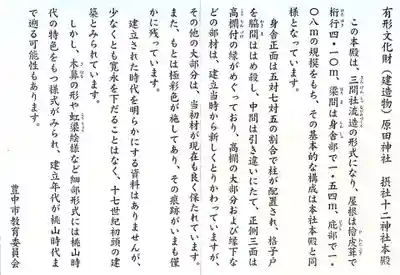 有形文化財（建造物）原田神社　摂社十二神社本殿
この本殿は、三間社流造の形式になり、屋根は檜皮葺で
桁行四・一〇m、梁間は身舎部で一・五四m、庇部で一・
〇八mの規模をもち、その基本的な構成は本社本殿と同
様となっています。
身舎正面は五対七対五の割合で柱が配置され、格子戸
を脇間ははめ殺し、中間は引き違いにたて、正側三面は
高欄付の縁がめぐっており、高欄の大部分および縁下な
どの部材は、建立当時から新しくとりかわっていますが、
その他の大部分は、当初材が現在も良く保たれています。
また、もとは極彩色が施してあり、その痕跡がいまも僅
かに残っています。
建立された時代を明らかにする資料はありませんが、
少なくとも寛永を下だることはなく、十七世紀初頭の建
築とみられています。
しかし、木鼻の形や虹梁絵様など細部形式には桃山時
代の特色をもつ様式がみられ、建立年代が桃山時代ま
で遡る可能性もあります。
豊中市教育委員会